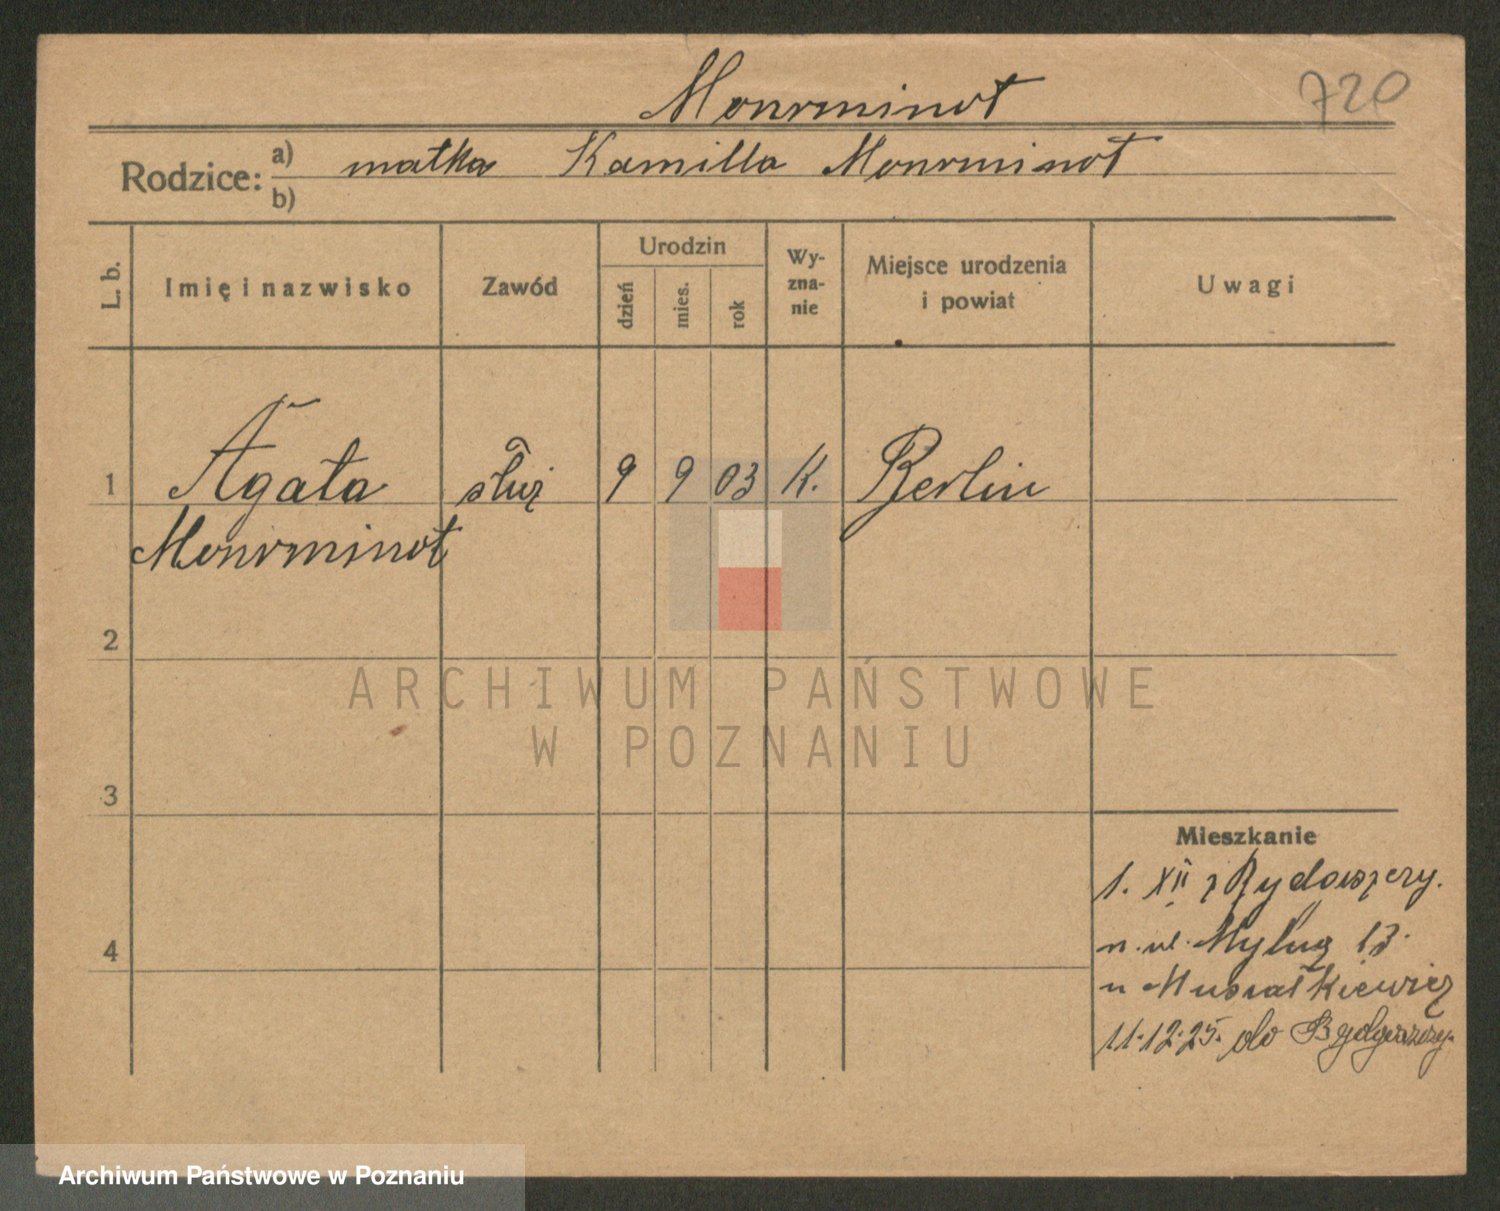 Monrminot
720
Rodzice: a) matka Kamilla Monrminot
b)
L. b.
Imię i nazwisko
Zawód
Urodzin
dzień
mies.
rok
Wy-
zna-
nie
Miejsce urodzenia
i powiat
Uwagi
1 Agata służ 9 9 03 K. Berlin
Monrminot
2
ARCHIWUM PAŃSTWOWE
W POZNANIU
3
Mieszkanie
1. XII z Bydoszczy.
n. ul. 13.
4
u
11.12.25. do Bydgoszczy.
Archiwum Państwowe w Poznaniu